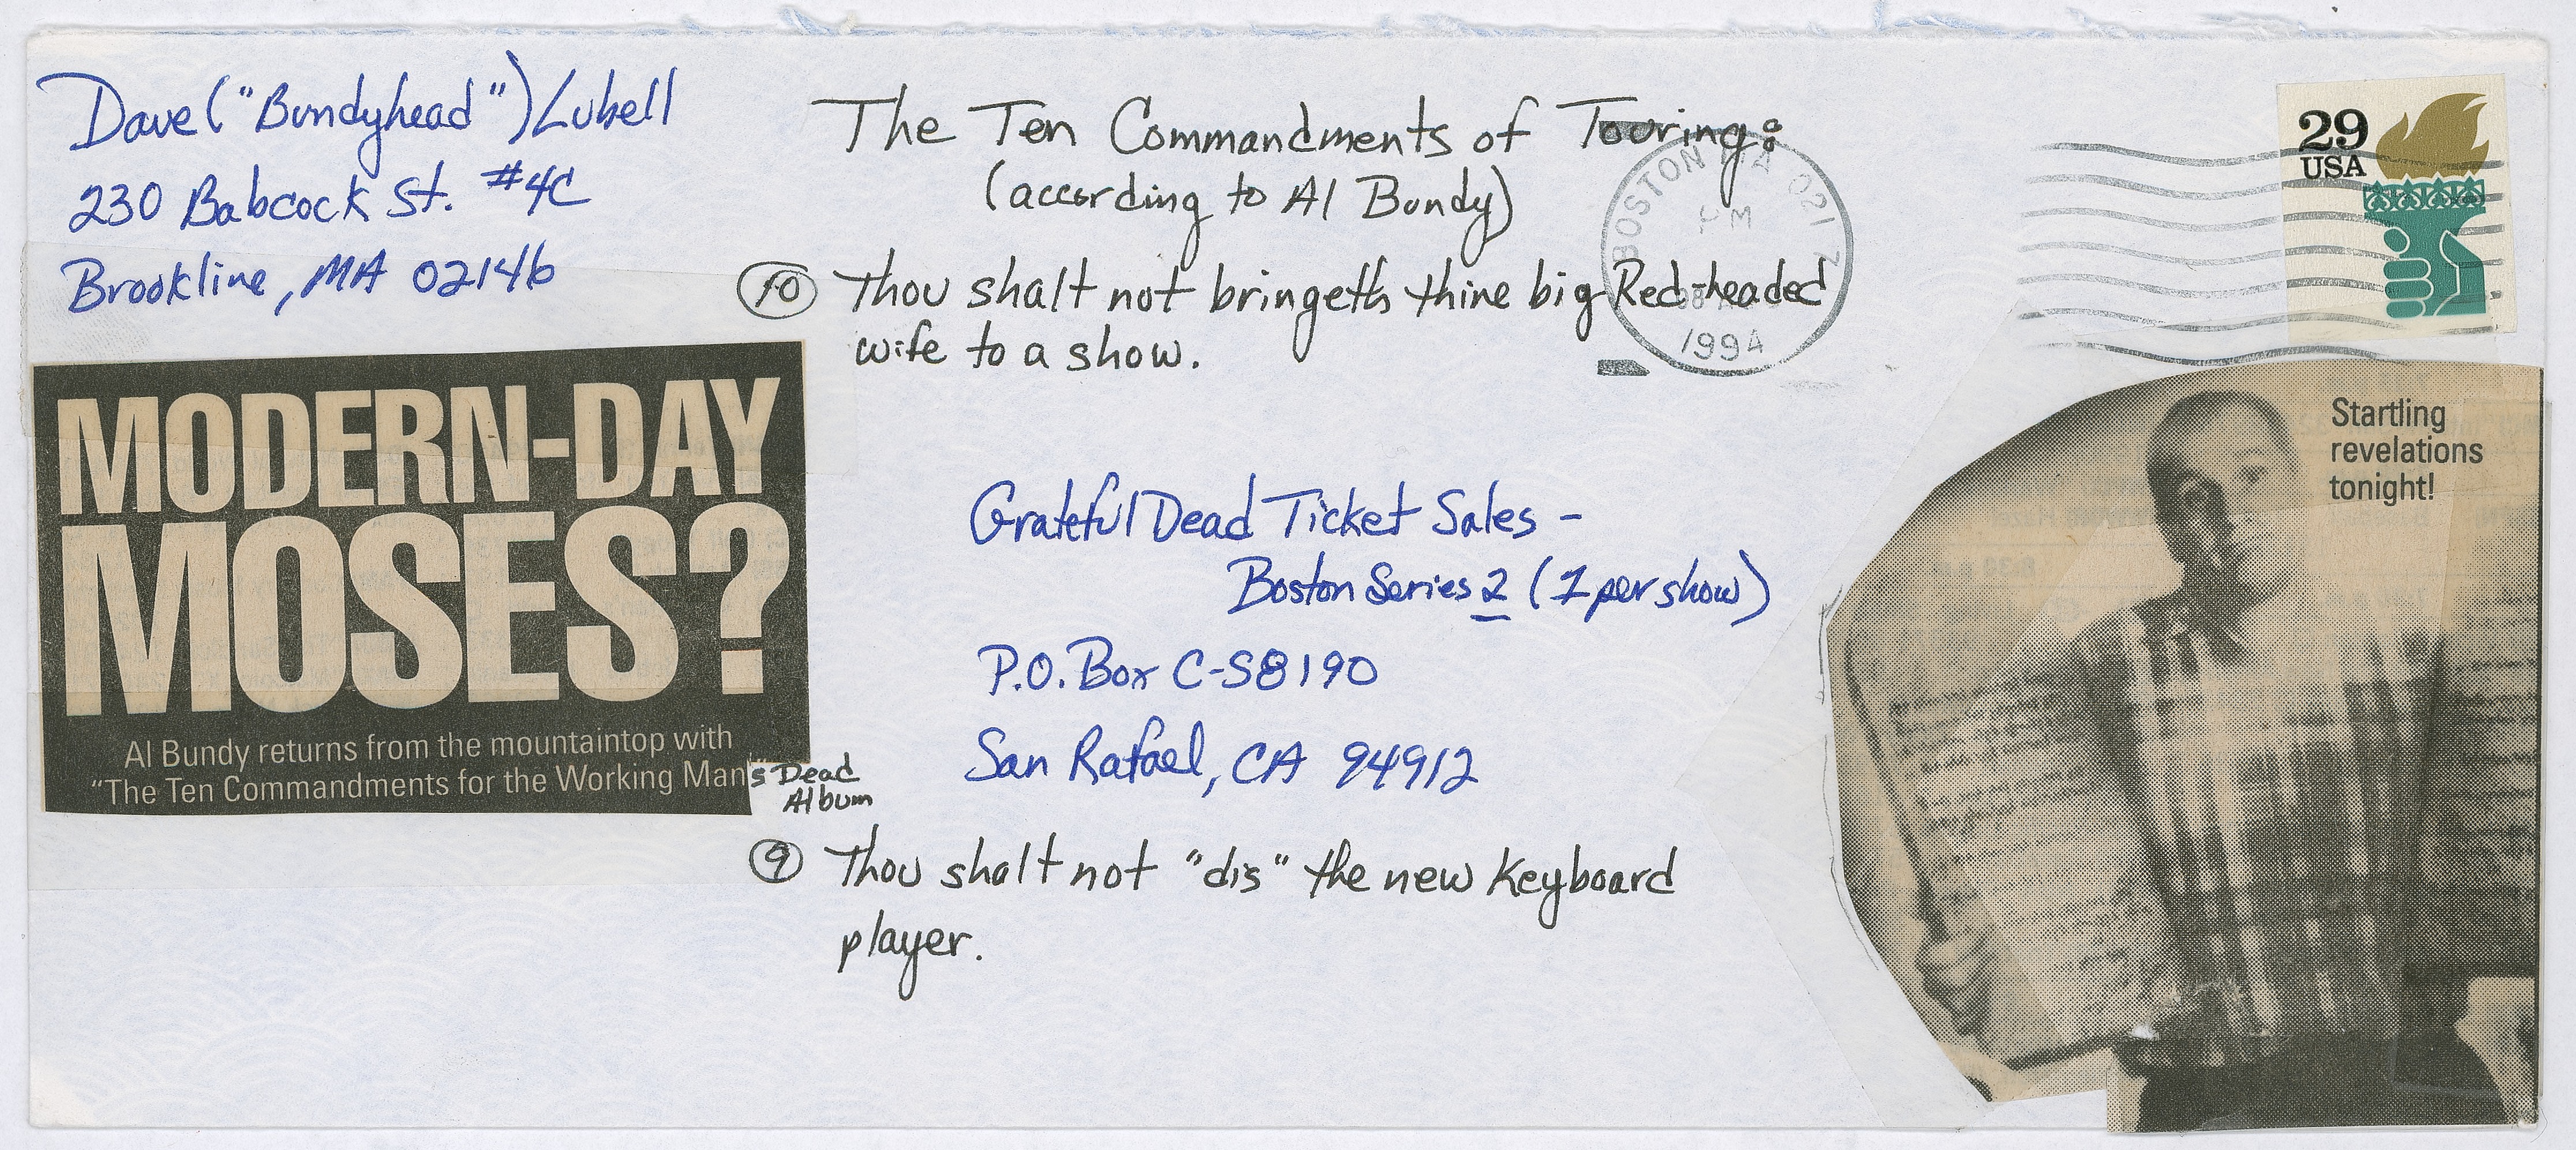 Dave ("Bundyhead") Lubell
230 Babcock St. #4C
Brookline, MA 02146
The Ten Commandments of Touring:
(according to Al Bundy)
29
USA
BOSTON MA 021
PM
1994
10 Thou shalt not bringeth thine big Red-headed
wife to a show.
MODERN-DAY
MOSES?
Al Bundy returns from the mountaintop with
"The Ten Commandments for the Working Man's Dead
Album
Startling
revelations
tonight!
Grateful Dead Ticket Sales -
Boston Series 2 (1 per show)
P.O. Box C-S8190
San Rafael, CA 94912
9 Thou shalt not "dis" the new keyboard
player.